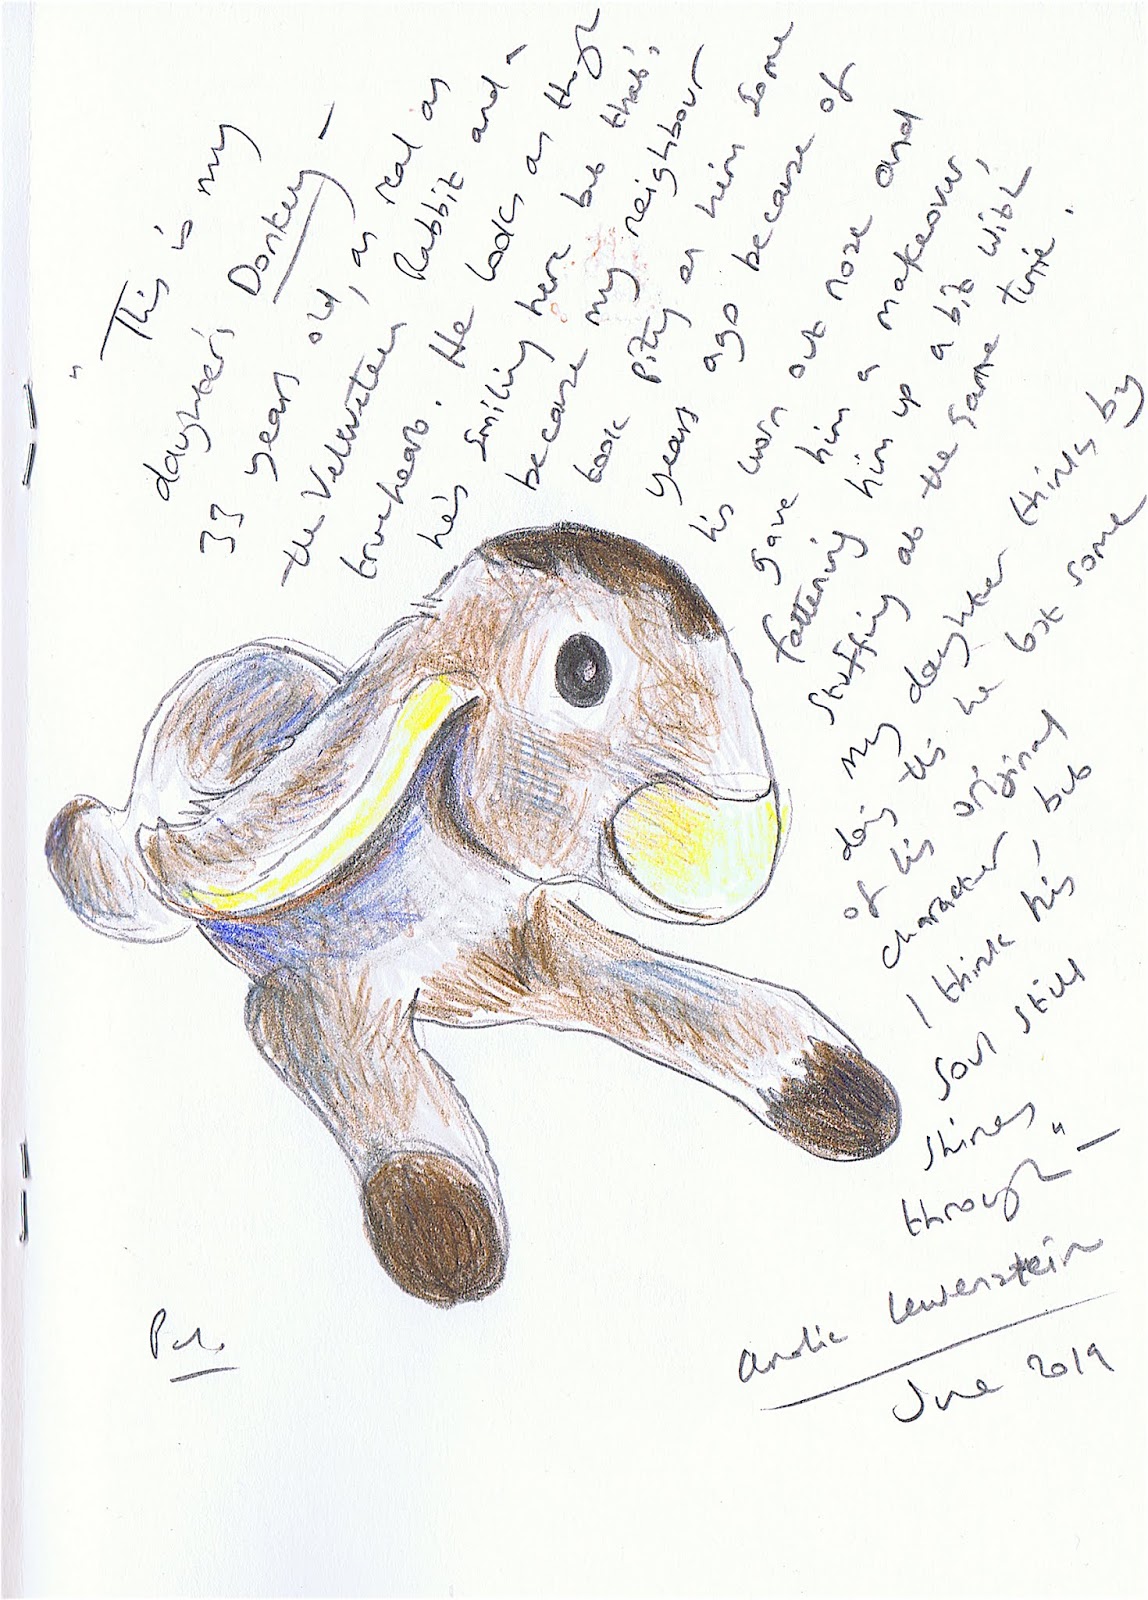 "This is my
daughter's Donkey –
33 years old, as real as
the Velveteen Rabbit and –
trueheart. He looks as though
he's smiling here but that's
because my neighbour
took pity on him some
years ago because of
his worn out nose and
gave him a makeover,
fattening him up a bit with
stuffing at the same time.
my daughter thinks by
doing this he lost some
of his original
character, but
I think his
soul still
shines
through" –
Andie Lewenstein
June 2019